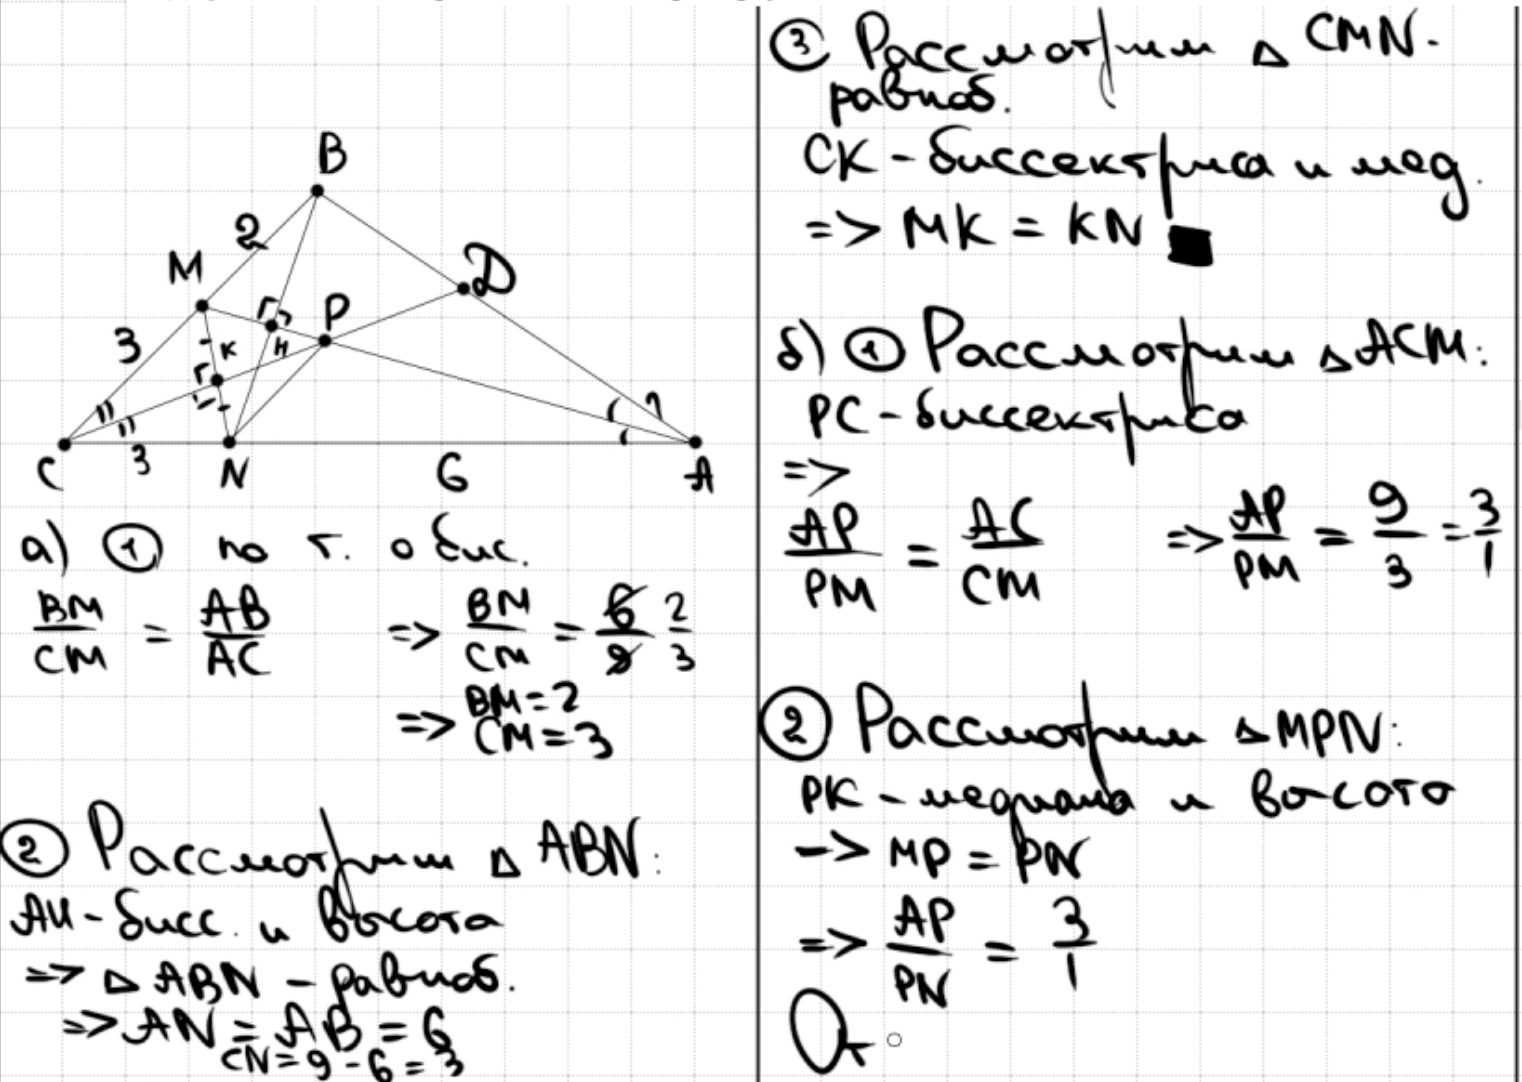 B
2
M
D
Р
3
К
Н
?
C
3
N
6
A
а) ① по т. о бис.
BM/CM = AB/AC => BM/CM = 6/9 2/3
=> BM = 2
CM = 3
② Рассмотрим △ ABN:
АН - бисс. и высота
=> △ ABN - равноб.
=> AN = AB = 6
CN = 9 - 6 = 3
③ Рассмотрим △ CMN.
равноб.
CK - биссектриса и мед.
=> MK = KN ■
б) ① Рассмотрим △ACM:
PC - биссектриса
=>
AP/PM = AC/CM => AP/PM = 9/3 = 3/1
② Рассмотрим △MPN:
PK - медиана и высота
-> MP = PN
=> AP/PN = 3/1
От